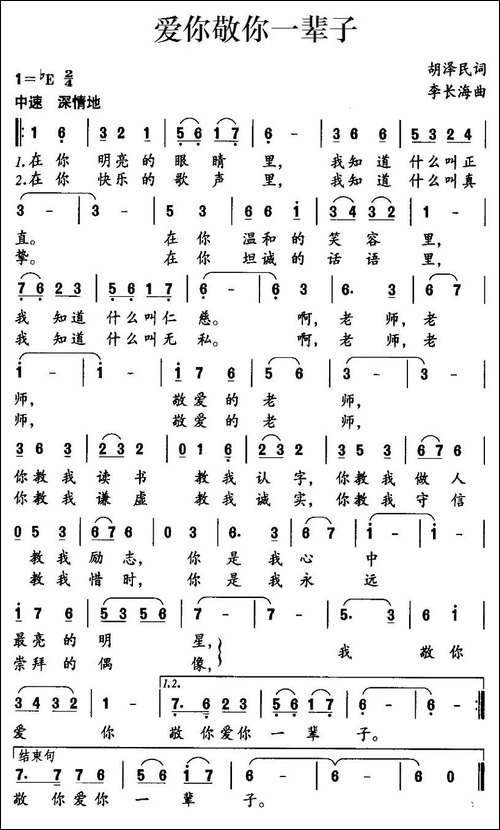 爱你敬你一辈子
1=♭E 2/4
胡泽民词
中速 深情地
李长海曲
‖: 1 6 | 3 2 1 | 5 6 1 7 | 6 - | 3 6 6 | 5 3 2 4 |
1.在你 明亮的 眼睛里， 我知道 什么叫正
2.在你 快乐的 歌声里， 我知道 什么叫真
3 - | 3 - | 5 3 | 6 6 i | 3 4 3 2 | 1 - |
直。 在你 温和的 笑容里，
挚。 在你 坦诚的 话语里，
7 6 2 3 | 5 6 1 7 | 6 - | 6 3 | 6. 3 | 6 7 |
我知道 什么叫仁 慈。 啊，老师，老
我知道 什么叫无 私。 啊，老师，老
i - | i - | i 7 6 | 5 6 | 3 - | 3 - |
师， 敬爱的老师，
师， 敬爱的老师，
3 6 3 | 2 3 2 | 0 1 6 | 2 3 2 | 3 5 3 | 6 7 6 |
你教我 读书 教我 认字，你教我 做人
你教我 谦虚 教我 诚实，你教我 守信
0 5 3 | 6 7 6 | 0 3 | 6. 3 | 6 7 | i - | i - |
教我 励志， 你是我心中
教我 惜时， 你是我永远
i 7 6 | 5 3 5 6 | 7 - | 7 - | 5. 3 | 6 i |
最亮的 明星， 我敬你
崇拜的 偶像，
3 4 3 2 | 1 - | 7. 6 2 3 | 5 6 1 7 | 6 - | 6 - :‖
1.2.
爱你 敬你爱你 一辈子。
结束句
7. 7 7 6 | 5 6 1 7 | 6 - | 6 - | 6 - | 6 0 ‖
敬你爱你 一辈子。